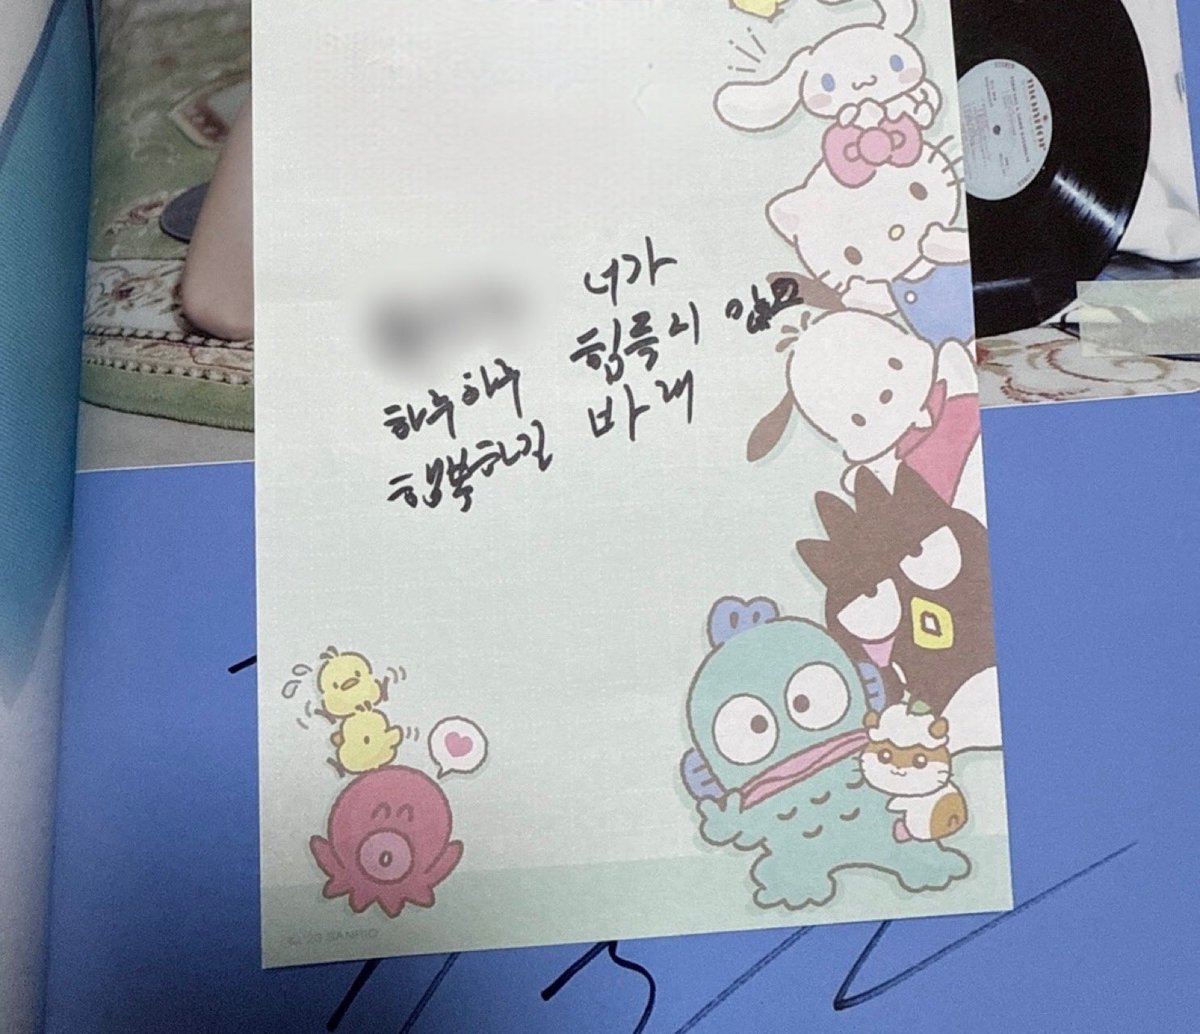 너가
하루하루 힘들지 않고
행복하길 바래
SANRIO